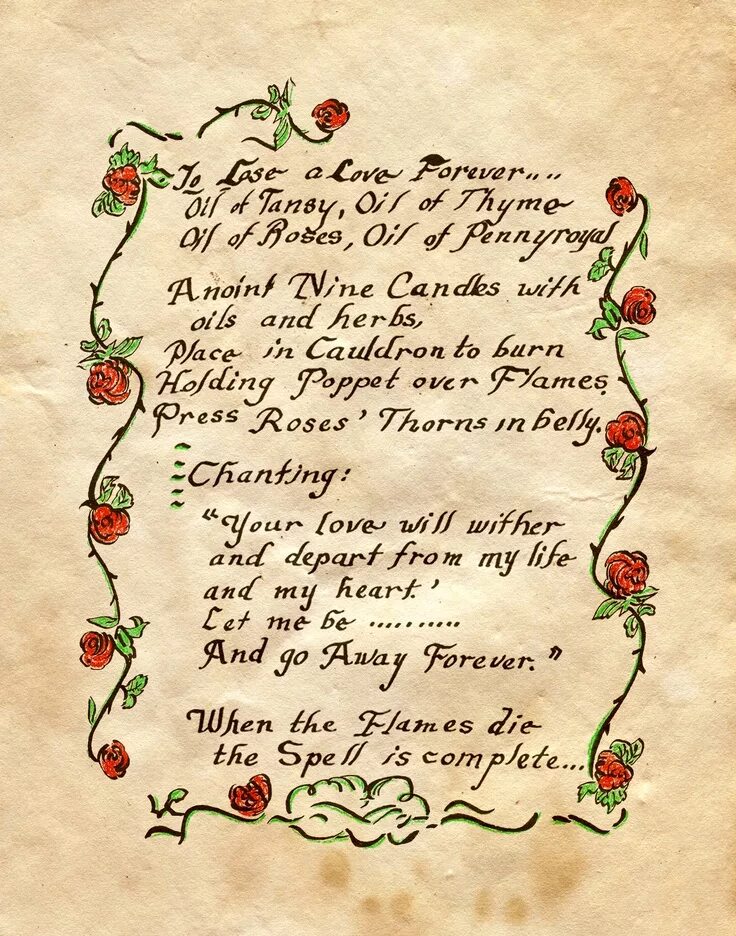 To Lose a Love Forever....
Oil of Tansy, Oil of Thyme
Oil of Roses, Oil of Pennyroyal
Anoint Nine Candles with
oils and herbs,
Place in Cauldron to burn
Holding Poppet over Flames.
Press Roses' Thorns in belly.
Chanting:
"Your love will wither
and depart from my life
and my heart.'
Let me be ..........
And go Away Forever."
When the Flames die
the Spell is complete...